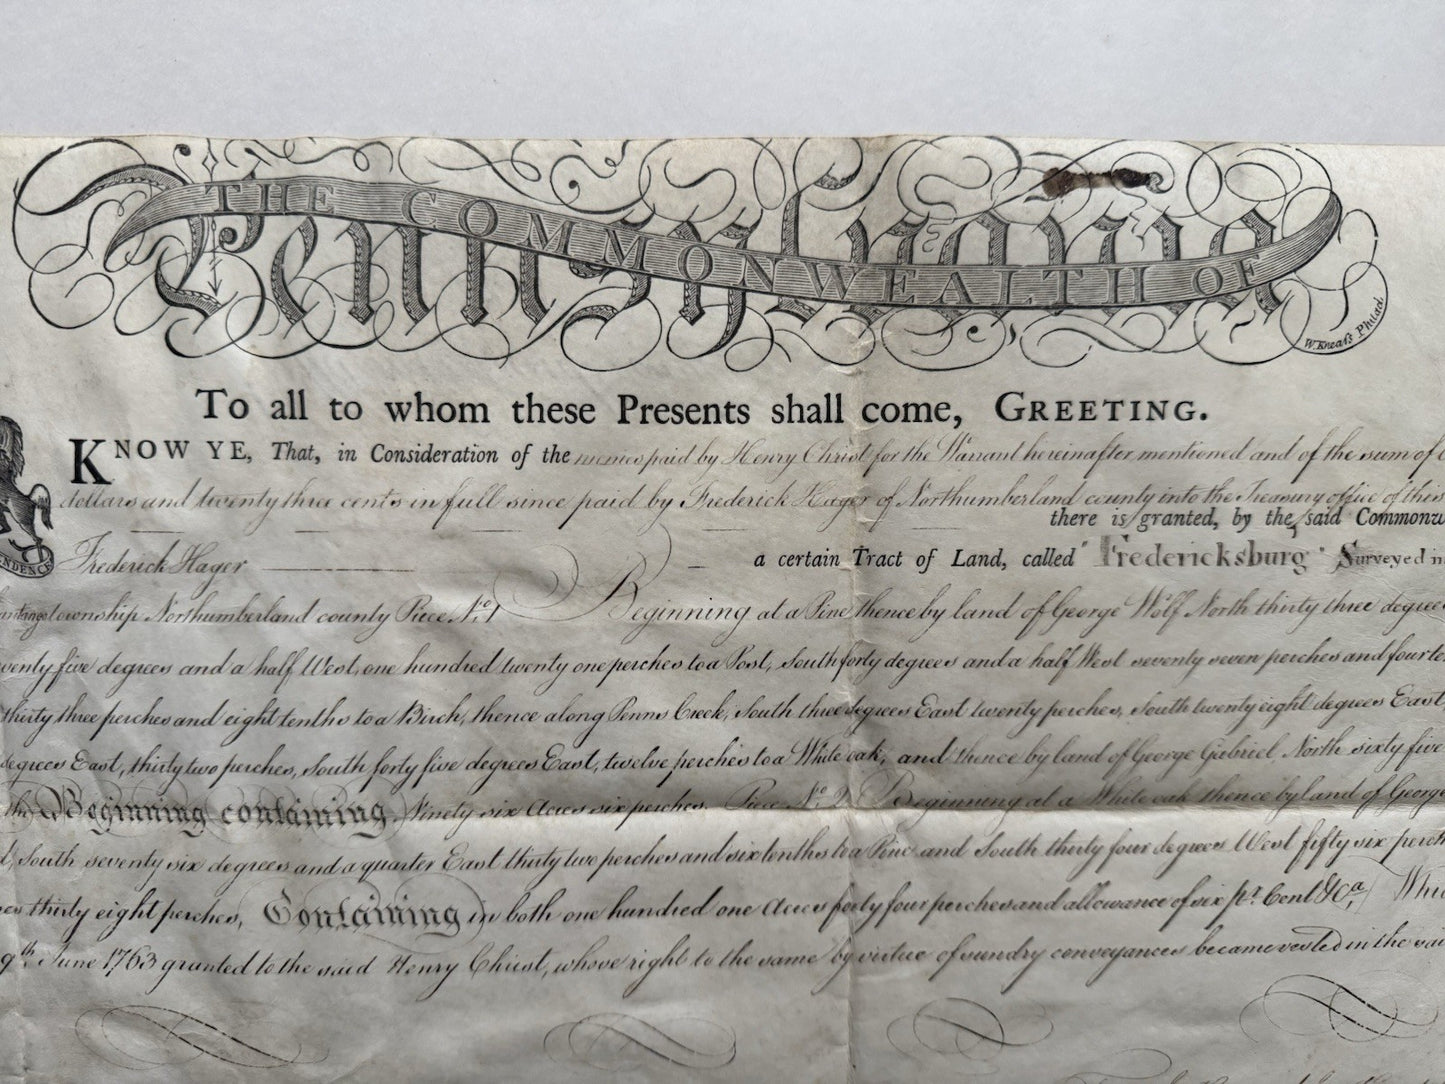 THE COMMONWEALTH OF
Pennsylvania
W. Kneass Philad.
To all to whom these Presents shall come, GREETING.
KNOW YE, That, in Consideration of the monies paid by Henry Christ for the Warrant hereinafter mentioned and of the sum of
dollars and twenty three cents in full since paid by Frederick Hager of Northumberland county into the Treasury office of this
there is granted, by the said Commonw
Frederick Hager a certain Tract of Land, called "Fredericksburg" Surveyed in
NDENCE
township Northumberland county Piece No. 1 Beginning at a Pine thence by land of George Wolf North thirty three degrees
wenty five degrees and a half West, one hundred twenty one perches to a Post, South forty degrees and a half West seventy seven perches and four te
thirty three perches and eight tenths to a Birch, thence along Penns Creek, South three degrees East twenty perches, South twenty eight degrees East,
degrees East, thirty two perches, South forty five degrees East, twelve perches to a White oak, and thence by land of George Gabriel North sixty five
the Beginning containing Ninety six Acres six perches. Piece No. 2 Beginning at a White oak thence by land of George
South seventy six degrees and a quarter East thirty two perches and six tenths to a Pine and South thirty four degrees West fifty six perch
thirty eight perches, Containing in both one hundred one Acres forty four perches and allowance of six pr. Cent &Ca. Whi
9th June 1763 granted to the said Henry Christ, whose right to the same by virtue of sundry conveyances became vested in the sai